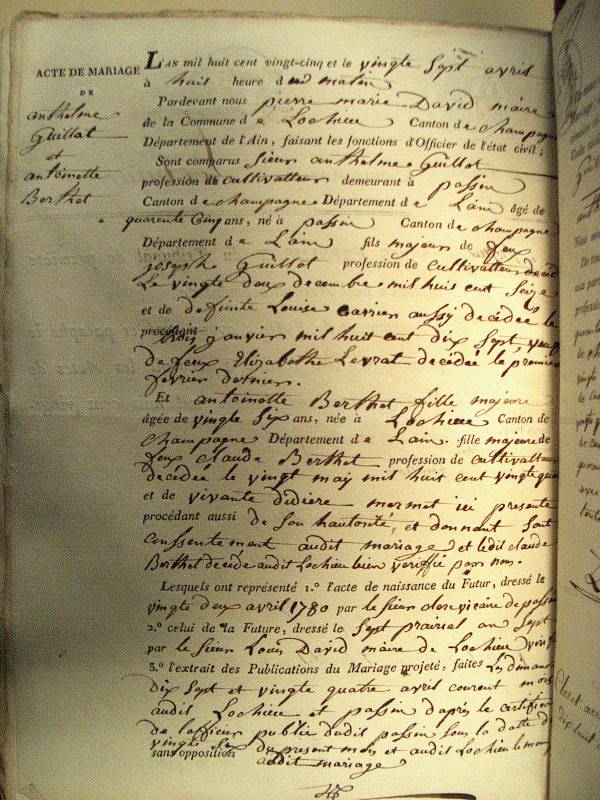 ACTE DE MARIAGE
DE
anthelme
Guillot
et
antoinette
Berthet
L'AN mil huit cent vingt-cinq et le vingte Sept avril
à huit heure du matin
Pardevant nous pierre marie David maire
de la Commune de Lochieu Canton de champagne
Département de l'Ain, faisant les fonctions d'Officier de l'état civil;
Sont comparus Sieur anthelme Guillot
profession de cultivatteur demeurant à passin
Canton de champagne Département de Lain âgé de
quarente Cinq ans, né à passin Canton de champagne
Département de Lain fils majeur de feux
joseph Guillot profession de cultivatteur décédé
Le vingte deux decembre mil huit cent Seize
et de defunte Louise carrier aussy décédée le
procédant trois janvier mil huit cent dix sept, veuf
de feux Elizabethe Levrat décédée le premier
fevrier dernier.
Et antoinette Berthet fille majeure
âgée de vingte Six ans, née à Lochieu Canton de
champagne Département de Lain fille majeure de
feux claude Berthet profession de cultivatteur
décédée le vingt may mil huit cent vingte
et de vivante didiere mermet ici presente
procédant aussi de Son hautorité, et donnant Sont
conssentement audit mariage et ledit claude
Berthet décédé audit Lochieu bien veriffié par nous.
Lesquels ont représenté 1.º l'acte de naissance du Futur, dressé le
vingte deux avril 1780 par le Sieur vicaire de passin
2.º celui de la Future, dressé le Sept prairial an Sept
par le Sieur Louis David maire de Lochieu
3.º l'extrait des Publications du Mariage projeté, faites Les dimanche
Dix Sept et vingte quatre avril courent mois
audit Lochieu et passin daprès le certificat
de lofficier publie dudit passin Sous la datte du
vingte Six du present mois et audit Lochieu le meme
sans opposition audit mariage